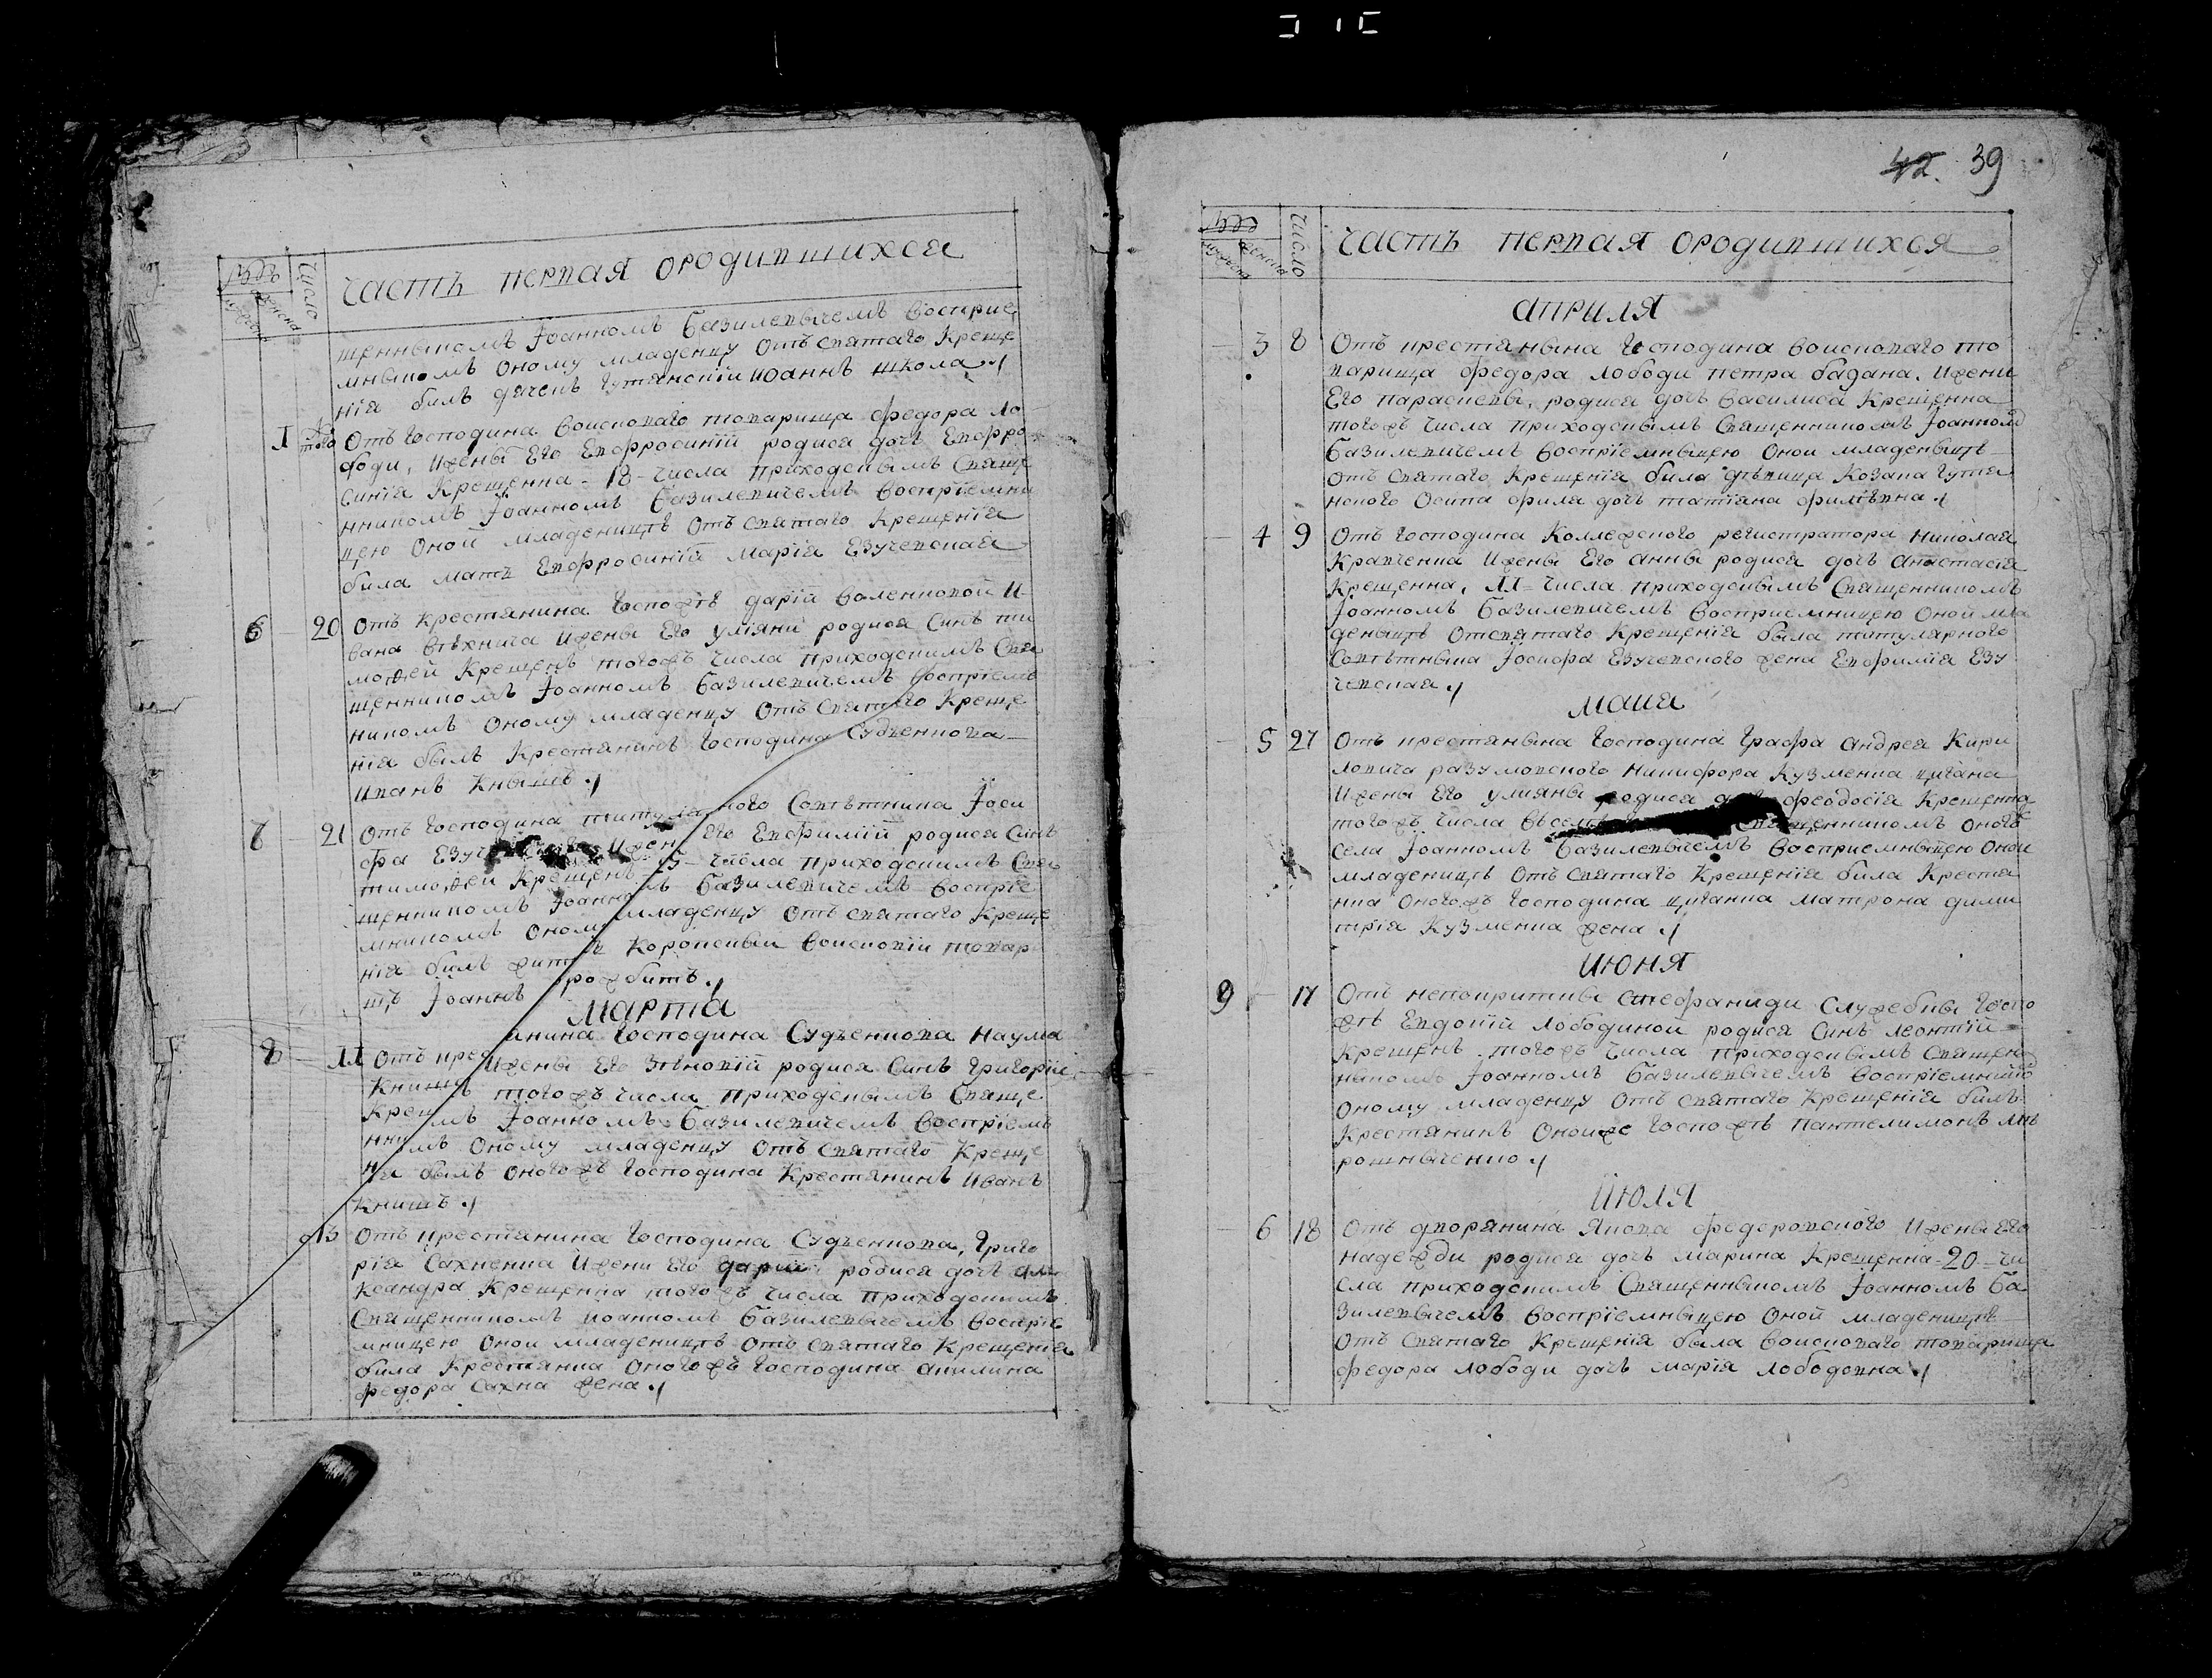 Часть первая ородившихся
Число
щенникомъ Іоанномъ Базилевичемъ Восприе
мникомъ Оному младенцу Отъ святаго Креще
нія билъ дячекъ Гутянскій Иоаннъ школа ./
1 того Отъ Господина Воисковаго товарища Федора Ло
боди, Ижены Его Евфросиніи родися дочь Евфро
синія Крещенна - 18 - Числа приходскимъ Свяще
нникомъ Іоанномъ Базилевичемъ Воспріемни
цею Оной младеницѣ Отъ святаго Крещенія
била мать Евфросиніи Марія Езучевская
6 20 Отъ Крестянина Госпожѣ Дарій Воленковой И
вана Вѣхнича Ижены Его Уліяни родися Синъ ти
моѳей Крещенъ тогожъ числа приходскимъ Свя
щенникомъ Іоанномъ Базилевичемъ Воспріем
никомъ Оному младенцу Отъ Святаго Креще
нія былъ Крестянинъ Господина Судиенкова
Иванъ Кнышъ ./
7 21 Отъ Господина титулярного Совѣтника Іоси
фа Езуч Ижен Его Евфимій родися Синъ
тимоѳеи Крещенъ Числа приходскимъ Свя
щенникомъ Іоанно мъ Базилевичемъ Воспріе
мникомъ Оному младенцу Отъ святаго Креще
нія билъ жит Коропскый Воисковій товар
щъ Іоаннъ рожбитъ ./
Марта
8 11 Отъ крес янина Господина Судъенкова Наума
Книша Ижены Его Зѣновій родися Синъ Григорій
Крещ тогожъ числа приходскымъ Свяще
нни мъ Іоанномъ Базилевичемъ Воспріем
никомъ Оному младенцу Отъ Святаго Креще
нія былъ Оногожъ Господина Крестянинъ Иванъ
Книшъ ./
2 13 Отъ Крестянина Господина Судъенкова, Григо
рія Сахненка Ижени Его Дарии родися дочь Але
ксандра Крещенна тогожъ числа приходскимъ
Священникомъ Иоанномъ Базилевичемъ Воспріе
мницею Оной младеницѣ Отъ Святаго Крещенія
была Крестянка Оногожъ Господина Акилина
Федора Сахна жена ./
42. 39
Число
Часть первая ородившихся
Априля
3 8 Отъ крестянына Господина Воисковаго то
варища Федора Лободи Петра Бадана, Ижени
Его Параскевы, родися дочь Василиса Крещенна
тогожъ Числа приходскымъ Священникомъ Іоанномъ
Базилевичемъ Воспріемныцею Оной младеныцѣ
Отъ Святаго Крещенія била дѣвица Козака Гутя
нского Осипа Филя дочь татіяна Филѣвна ./
4 9 Отъ Господина Коллежского регистратора Николая
Кравченка Ижены Его Анны родися дочь Анастасія
Крещенна, 11 - Числа приходскымъ Священникомъ
Іоанномъ Базилевичемъ Восприемницею Оной мла
деныцѣ Отсвятаго Крещенія была титулярного
Совѣтныка Іосифа Езучевского жена Евфимія Езу
чевская ./
Маия
5 27 Отъ крестянына Господина Графа Андрея Кири
ловича разумовского Никифора Кузменка цигана
Ижены Его Улияны родися доч Феодосія Крещенна
тогожъ Числа Всел Священникомъ Оного
села Іоанномъ Базилевычемъ Восприемныцею Оной
младеницѣ Отъ Святаго Крещенія била Крестя
нка Оногожъ Господина циганка Матрона Дими
трія Кузменка жена ./
Июня
9 17 Отъ непокритки Стефаниди Служебки Госпо
жѣ Евдокій Лободиной родися Синъ Леонтій
Крещенъ тогожъ Числа приходскимъ Священ
ныкомъ Іоанномъ Базилевычемъ Воспріемнико
Оному младенцу Отъ святаго Крещенія билъ
Крестянинъ Оноиже Госпожѣ Пантелимонъ Мѣ
рошныченко ./
Июля
6 18 Отъ дворянина Якова Федоровского Ижены Его
Надежди родися дочь Марина Крещенна - 20 - Чи
сла приходскимъ Священныкомъ Іоанномъ Ба
зилевычемъ Воспріемныцею Оной младеницѣ
Отъ Святаго Крещенія была Воисковаго товарища
Федора Лободи дочь Марія Лободовна ./